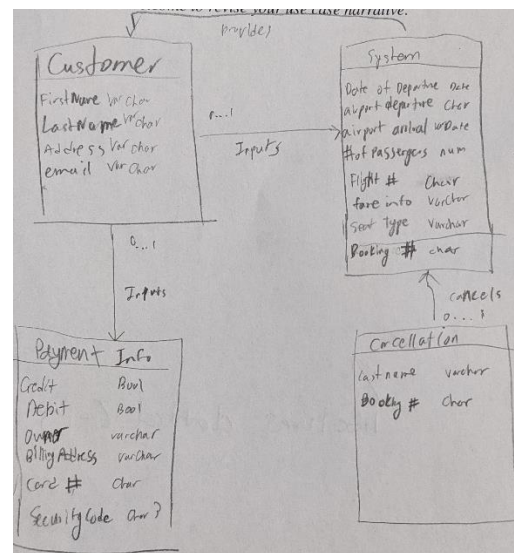 welcome to revise your use case narrative.
provides
Customer
FirstName VarChar
LastName VarChar
Address VarChar
email VarChar
0...1
Inputs
System
Date of Departure Date
airport departure Char
airport arrival
# of Passengers num
Flight # Char
fare info VarChar
Seat Type Varchar
Booking # char
0...1
Inputs
cancels
0...1
Payment Info
Credit Bool
Debit Bool
Owner varchar
Billing Address VarChar
Card # Char
Security Code Char 3
Cancellation
last name varchar
Booking # Char